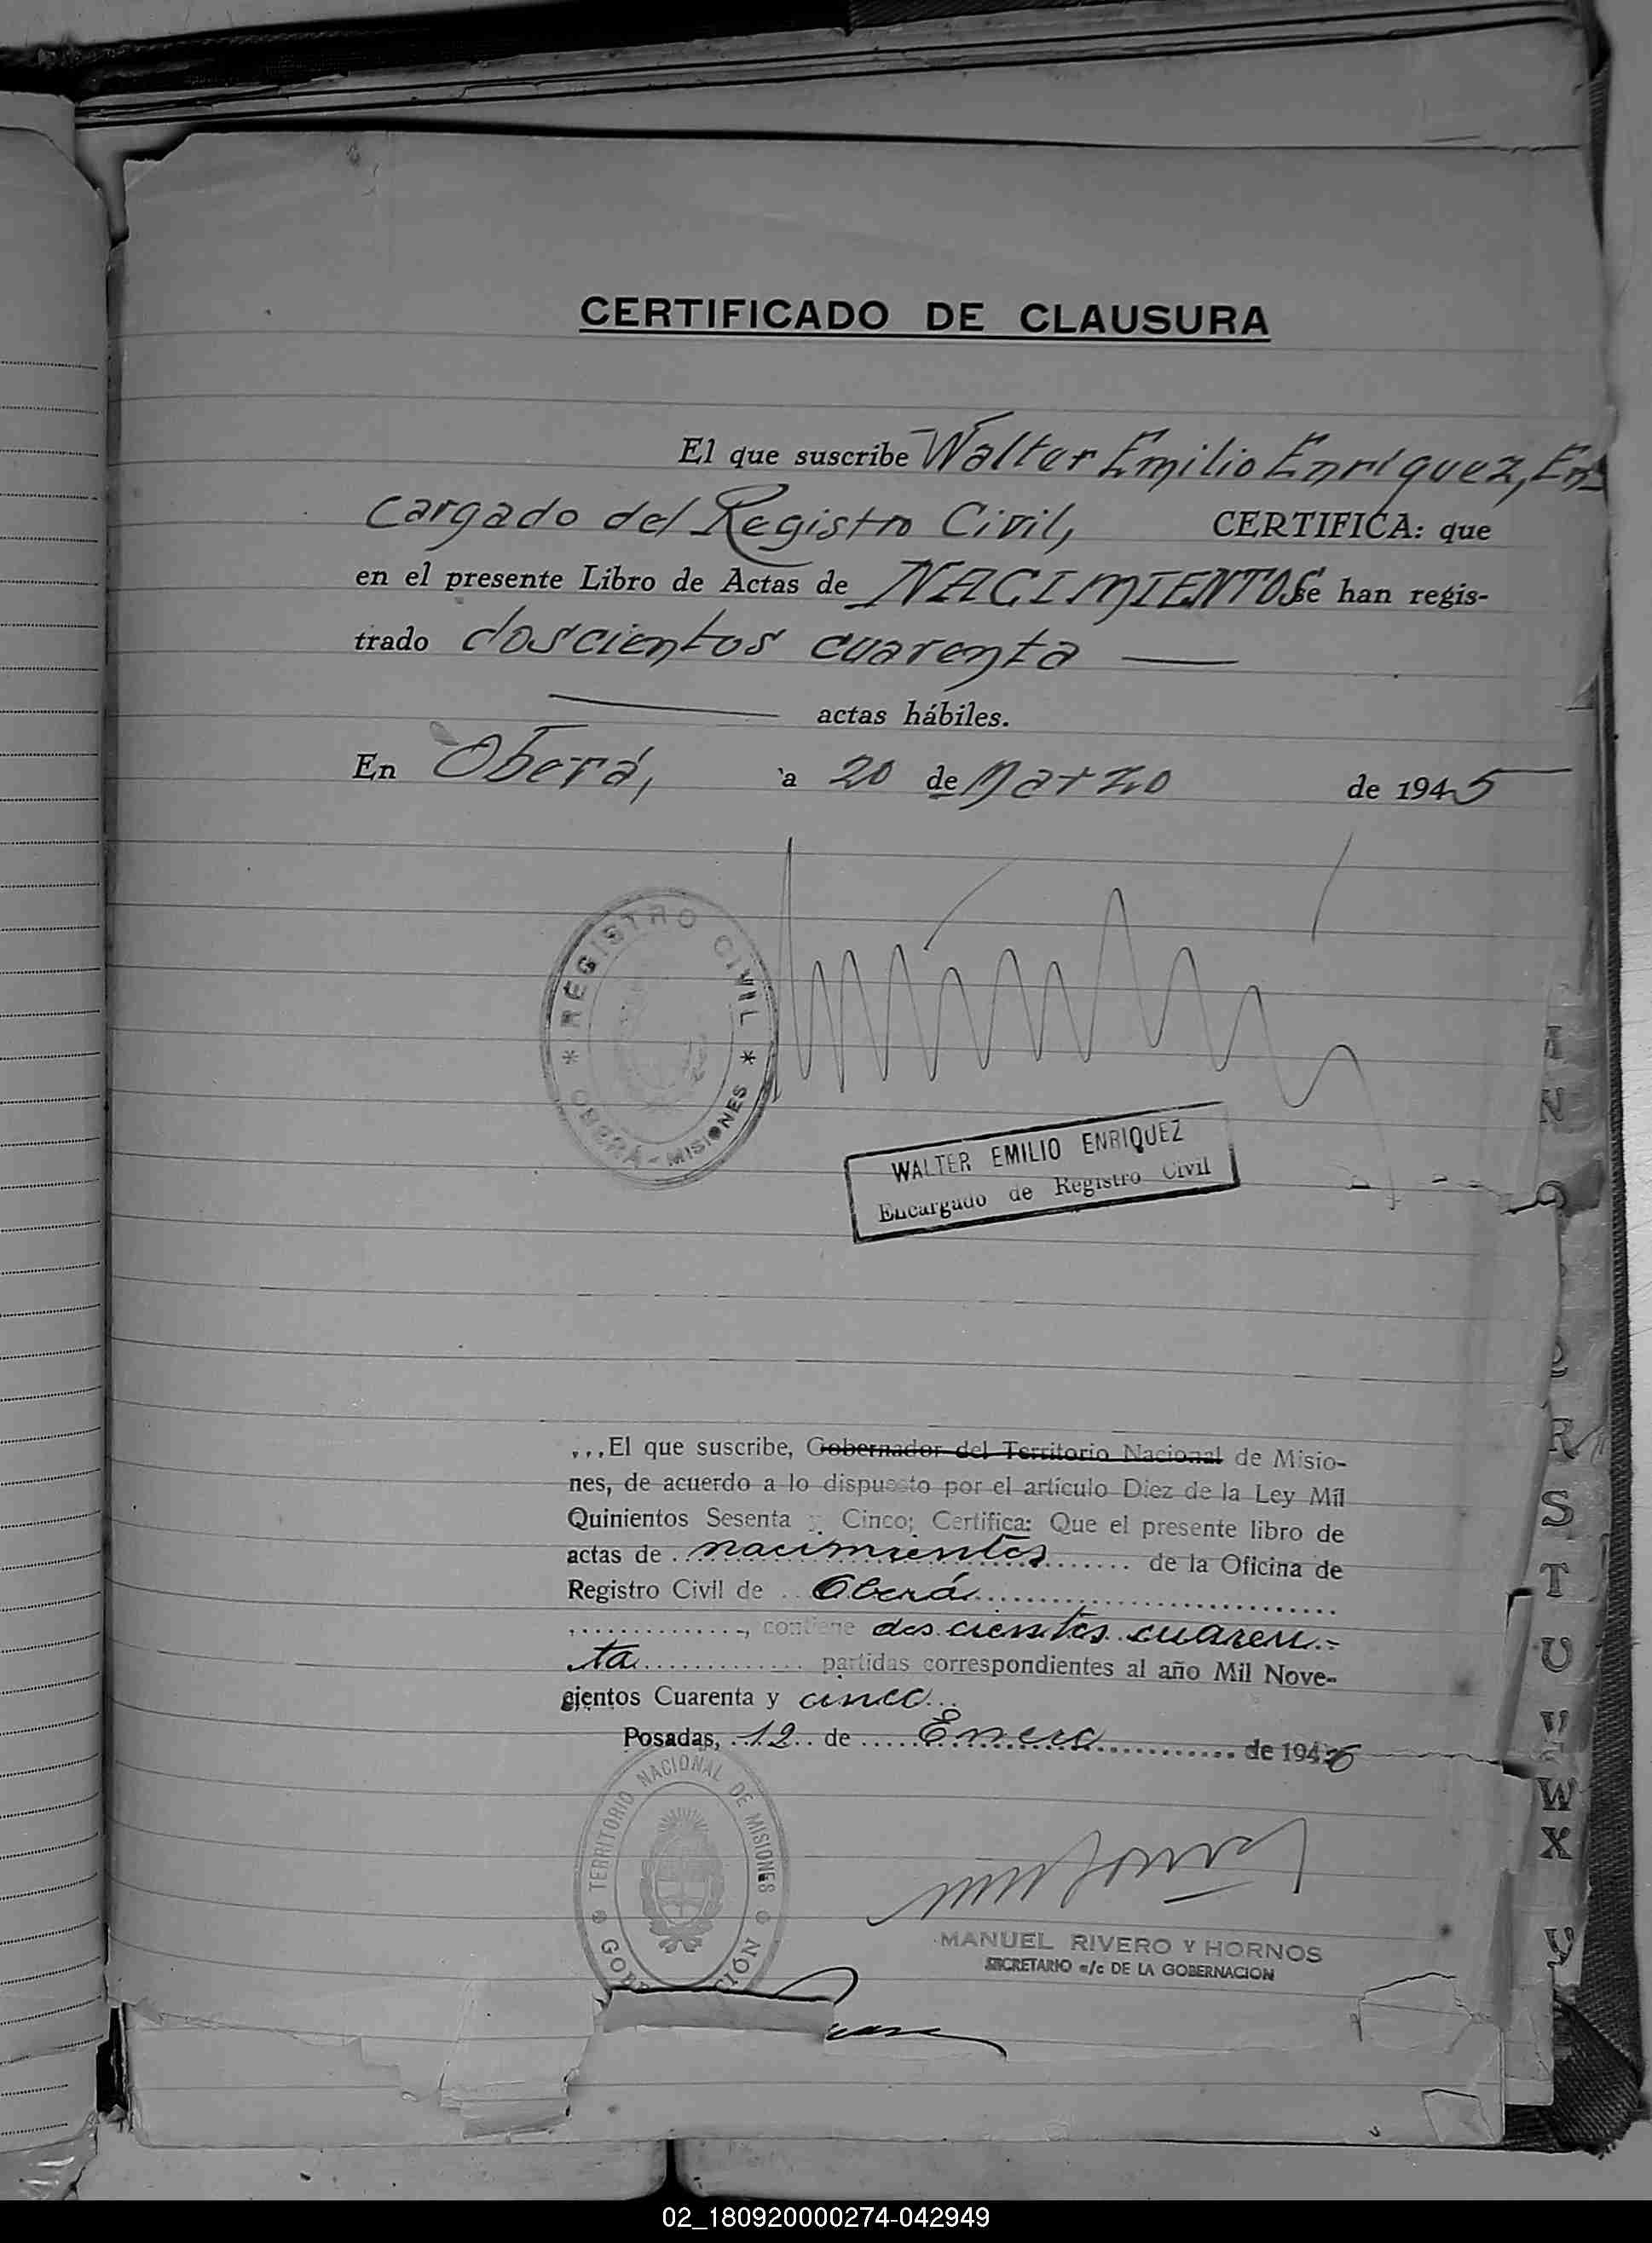 CERTIFICADO DE CLAUSURA
El que suscribe Walter Emilio Enríquez, En-
cargado del Registro Civil, CERTIFICA: que
en el presente Libro de Actas de NACIMIENTOS se han regis-
trado doscientos cuarenta
actas hábiles.
En Oberá, a 20 de Marzo de 1945
REGISTRO CIVIL
* OBERÁ - MISIONES *
WALTER EMILIO ENRIQUEZ
Encargado de Registro Civil
...El que suscribe, Gobernador del Territorio Nacional de Misio-
nes, de acuerdo a lo dispuesto por el artículo Diez de la Ley Mil
Quinientos Sesenta y Cinco; Certifica: Que el presente libro de
actas de nacimientos de la Oficina de
Registro Civil de Oberá
, contiene dos cientos cuaren-
ta partidas correspondientes al año Mil Nove-
cientos Cuarenta y cinco
Posadas, 12 de Enero de 1946
TERRITORIO NACIONAL DE MISIONES
MANUEL RIVERO Y HORNOS
SECRETARIO a/c DE LA GOBERNACION
N
R
S
T
U
V
W
X
Y
02_180920000274-042949